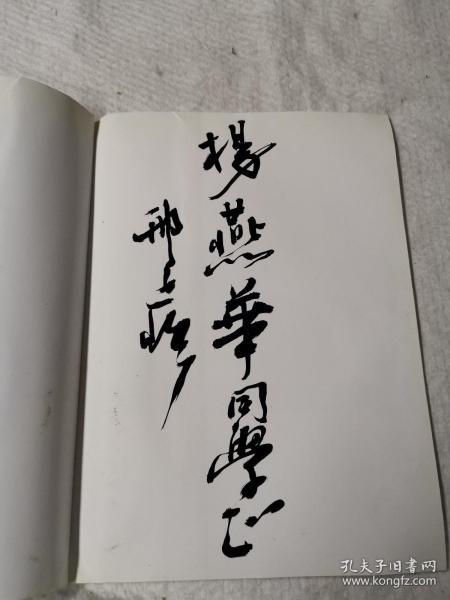 楊燕華同學正
邢士珍
孔夫子旧书网
www.kongfz.com